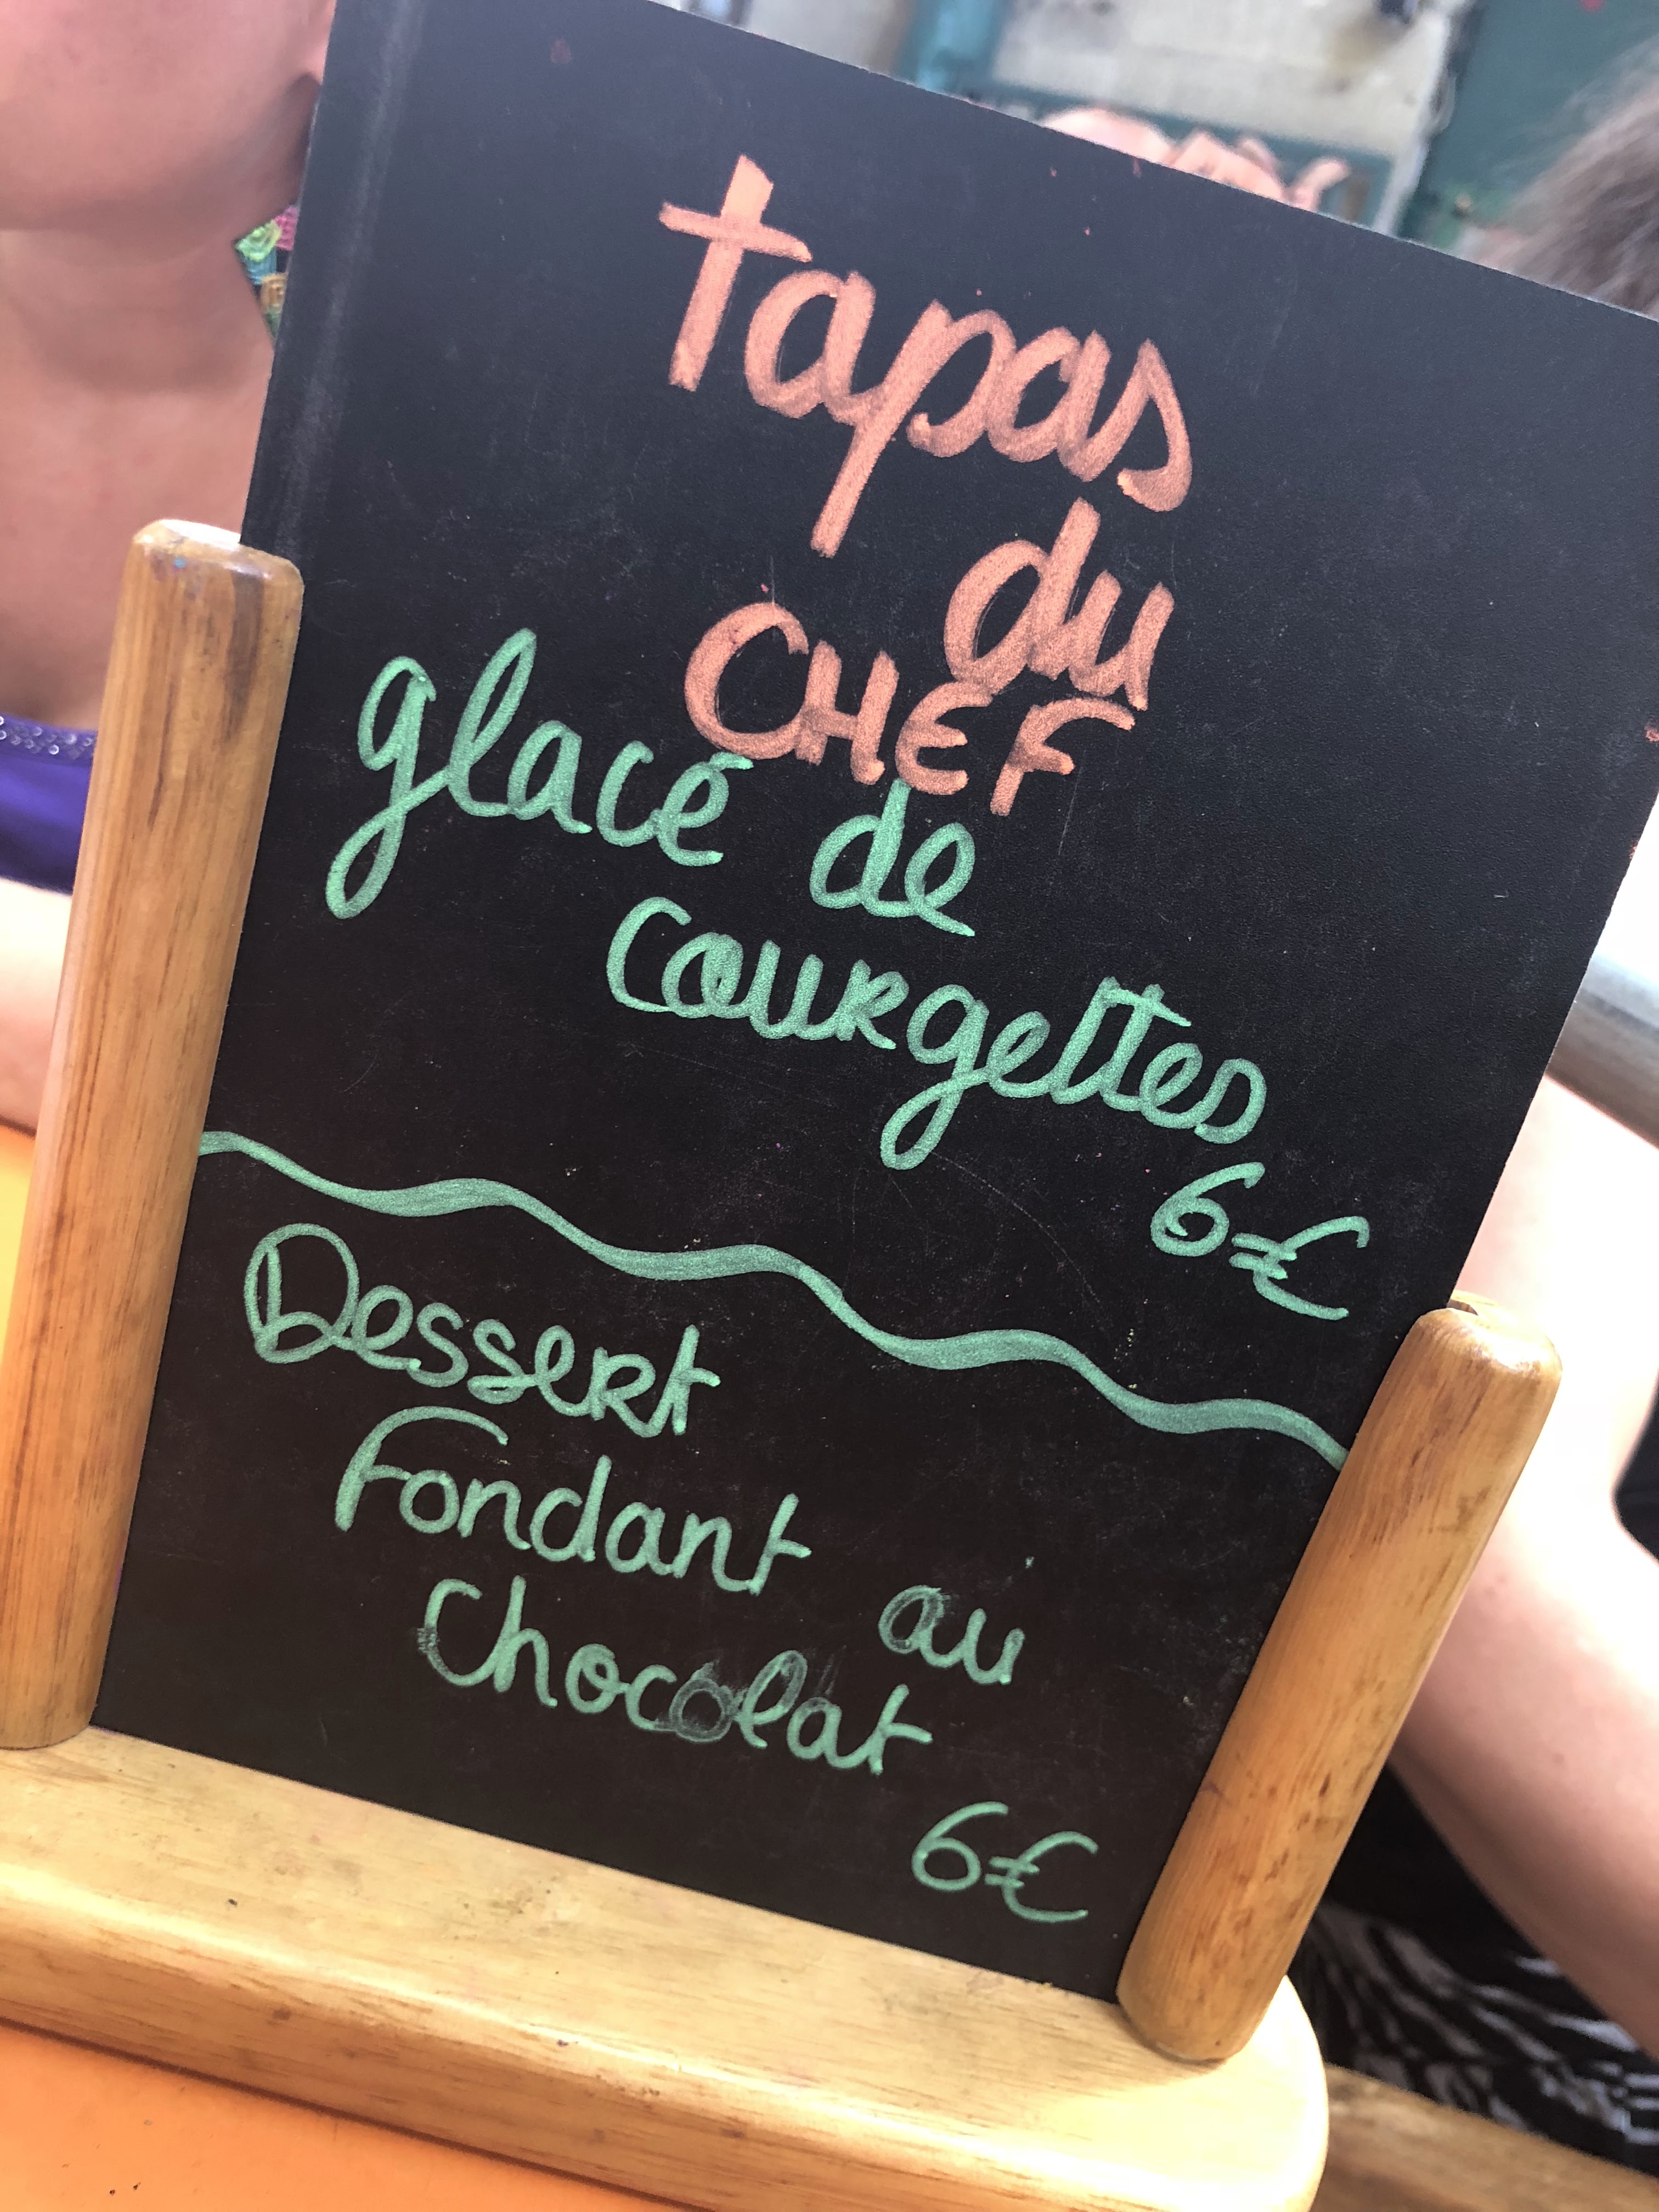 tapas
du
CHEF
glacé de
courgettes
6€
Dessert
Fondant au
Chocolat
6€